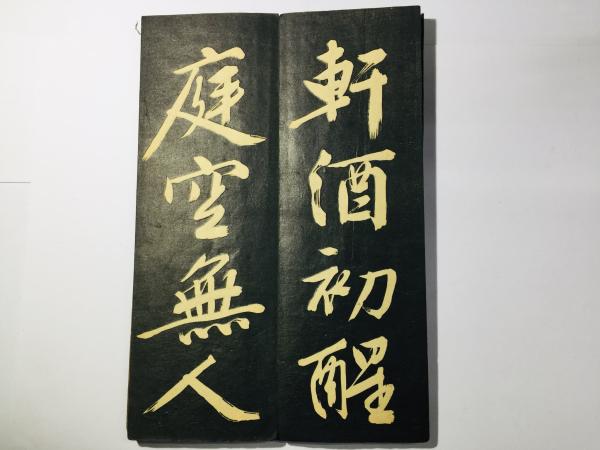 軒酒初醒
庭空無人